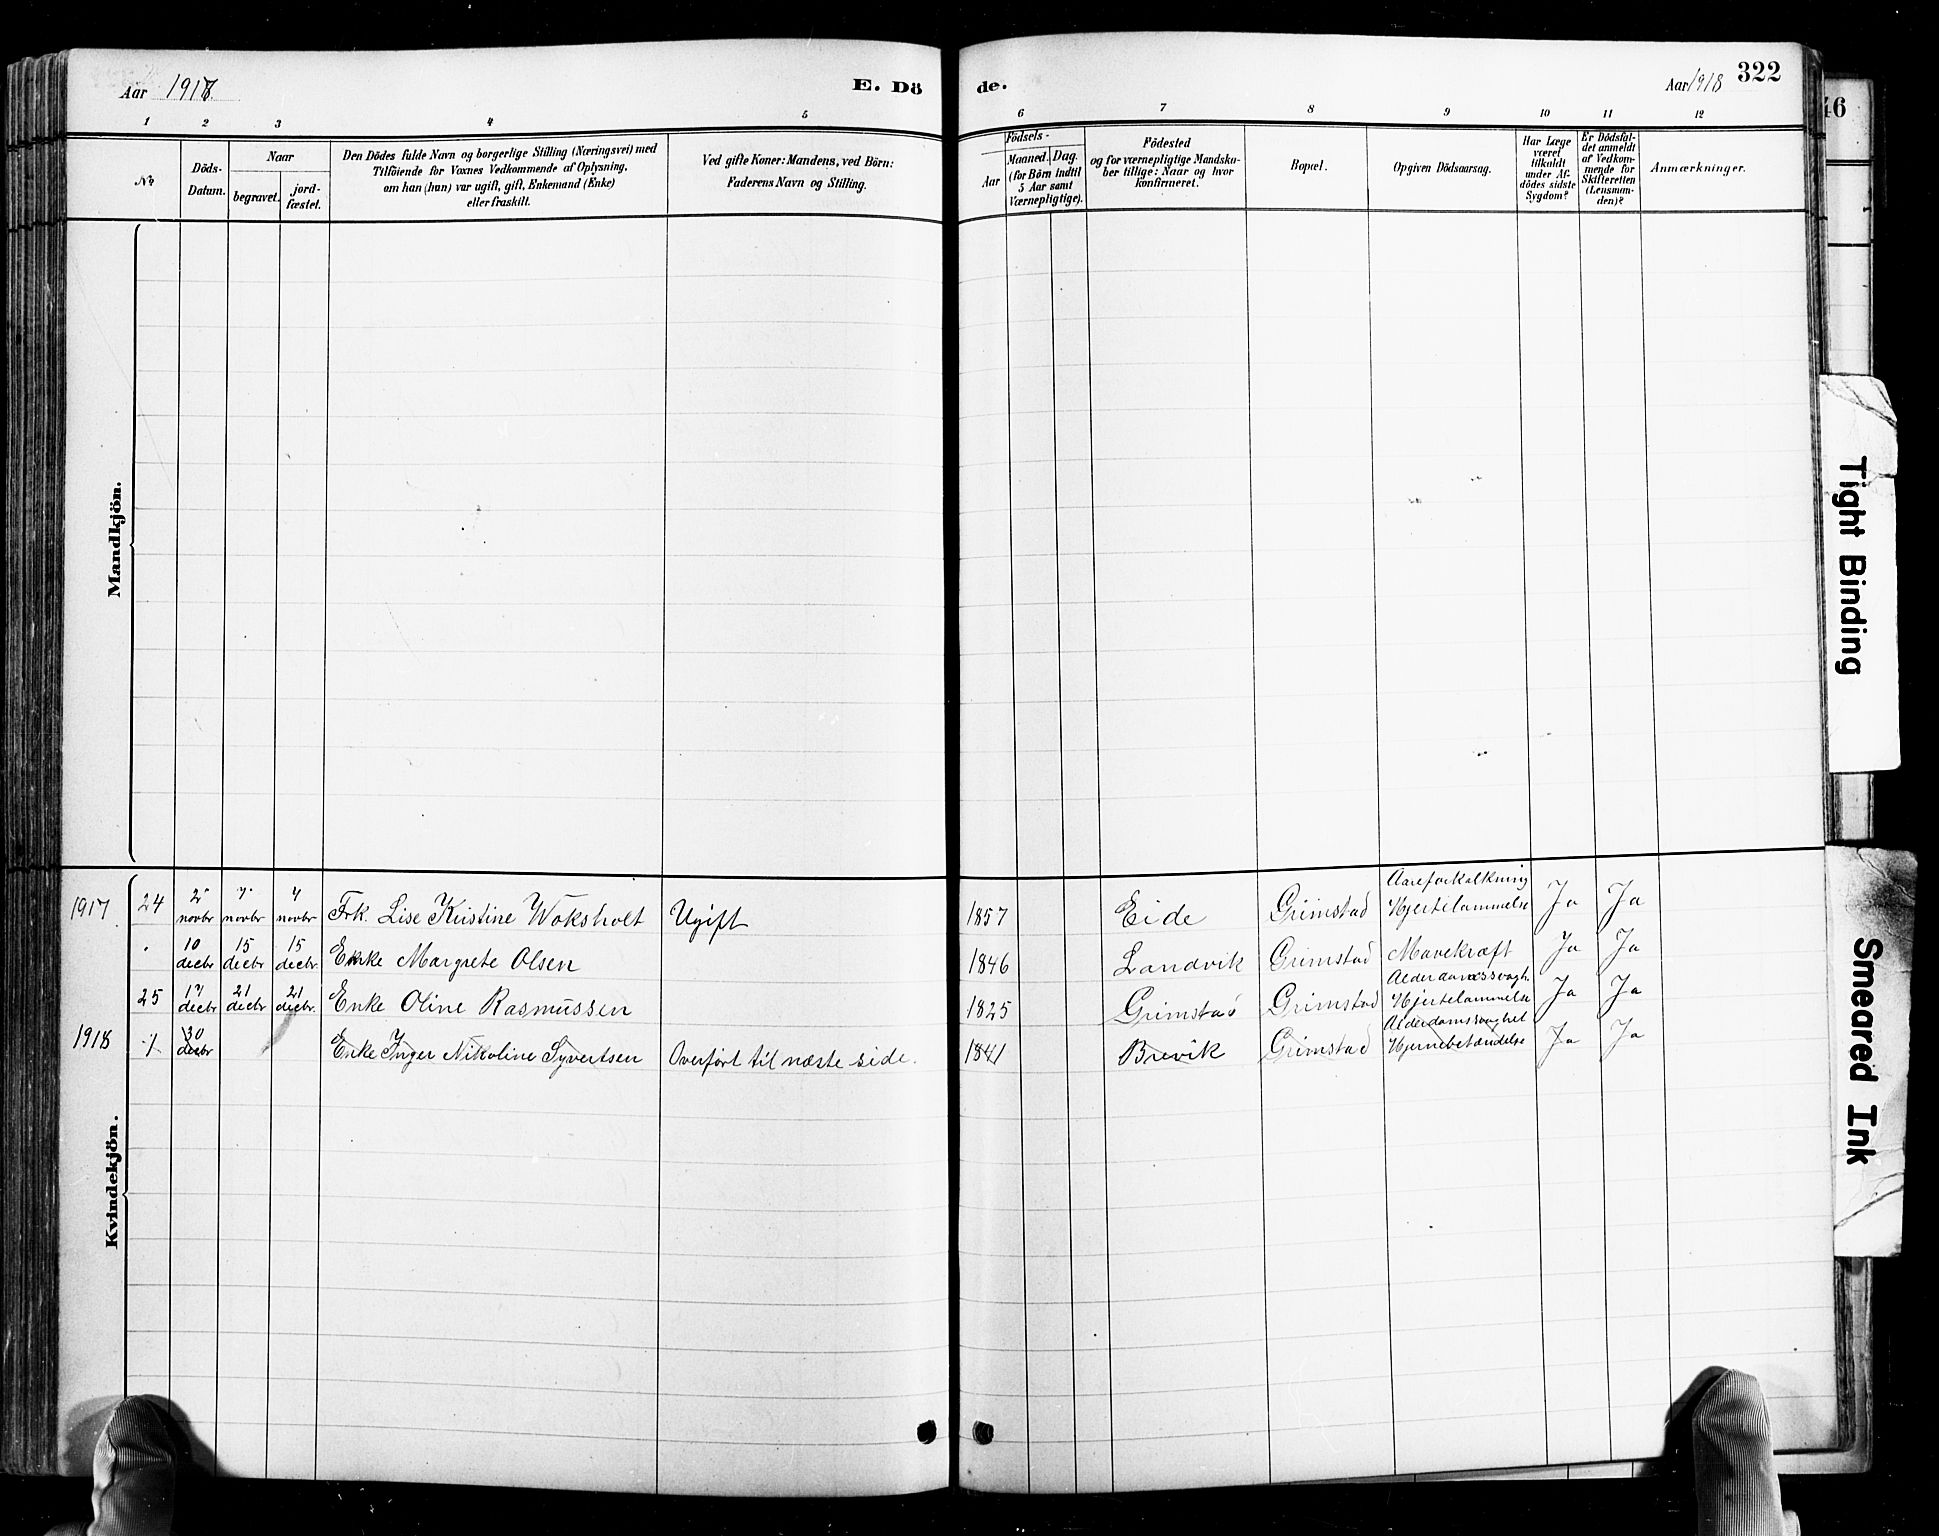 Aar 1918.
E. Dö
de.
Aar 1918
322
46
1 2 3 4 5
6 7 8 9 10 11 12
No
Döds-
Datum.
Naar
begravet.
jord-
fæstet.
Den Dödes fulde Navn og borgerlige Stilling (Næringsvei) med
Tilföiende for Voxnes Vedkommende af Oplysning,
om han (hun) var ugift, gift, Enkemand (Enke)
eller fraskilt.
Ved gifte Koner: Mandens, ved Börn:
Faderens Navn og Stilling.
Födsels-
Aar
Maaned. Dag.
(for Börn indtil
5 Aar samt
Værnepligtige).
Födested
og for værnepligtige Mandska-
ber tillige: Naar og hvor
konfirmeret.
Bopæl.
Opgiven Dödsaarsag.
Har Læge
været
tilkaldt
under Af-
dödes sidste
Sygdom?
Er Dödsfal-
det anmeldt
af Vedkom-
mende for
Skifteretten
(Lensman-
den)?
Anmærkninger.
Mandkjön.
Kvindekjön.
1917 24 2 novbr 7 novbr 7 novbr Frk. Lise Kristine Woksholt Ugift 1857 Eide Grimstad Aareforkalkning Hjertelammelse Ja Ja
10 decbr 15 decbr 15 decbr. Enke Margrete Olsen 1846 Landvik Grimstad Mavekræft Ja Ja
25 17 decbr 21 decbr 21 decbr. Enke Oline Rasmussen 1825 Grimstad Grimstad Alderdomssvagh. Hjertelammelse Ja Ja
1918 1 30 decbr Enke Inger Nikoline Syvertsen Overført til næste side. 1841 Brevik Grimstad Alderdomssvaghet Hjernebetændelse Ja Ja
Tight Binding
Smeared Ink